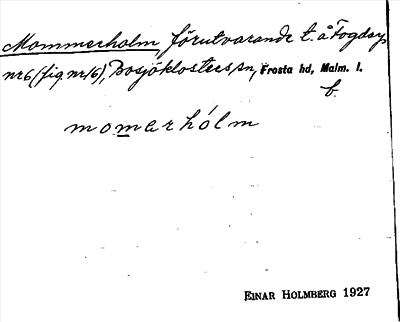 Mommerholm förutvarande t. å Fogdarp
nr 6 (fig. nr 16), Bosjöklosters sn, Frosta hd, Malm. l.
b.
momarhólm
EINAR HOLMBERG 1927